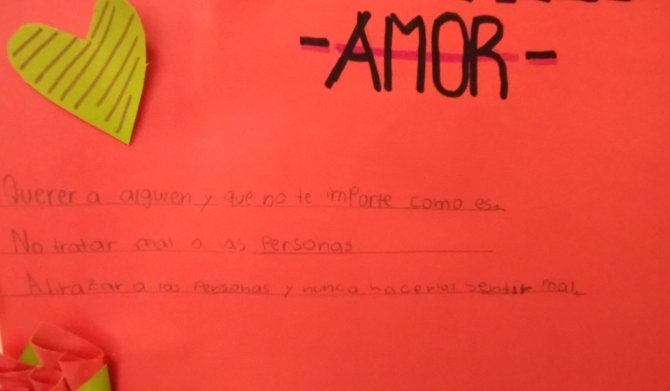 -AMOR-
Querer a alguien y que no te importe como es.
No tratar mal a las personas
Abrazar a las personas y nunca hacerlas sentir mal.